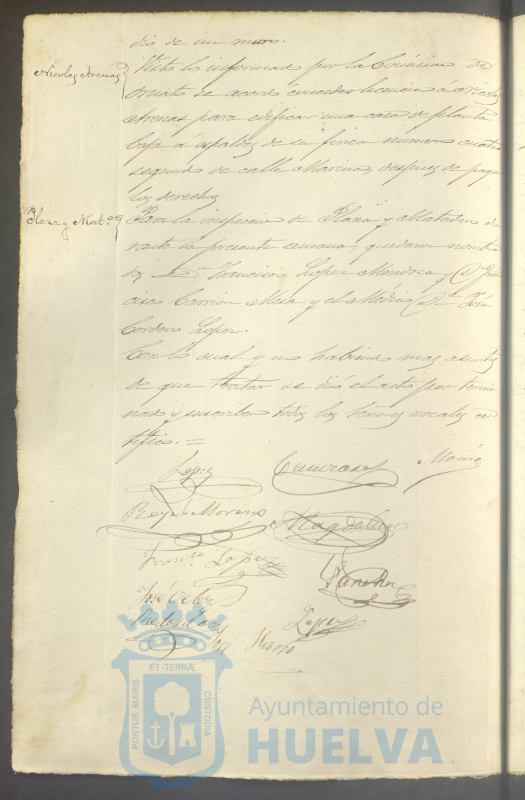 dio de un muro.
Nicolas Arenas
Visto lo informado por la Comision de
Ornato se acordó conceder licencia á Nicolas
Arenas para edificar una casa de planta
baja á espaldas de su finca numero cuatro
segundo de calle Marina, despues de pagar
los derechos
Plaza y Mat.º
Para la inspeccion de Plaza y Matadero du
rante la presente semana, quedaron nombra
dos D.n Francisco Lopez Mendoza y D.n
Carrion Mesa y el Médico D.n José
Cordero Lopez.
Con lo cual y no habiendo mas asuntos
de que tratar se dió el acto por termi
nado y suscriben todos los Señores vocales cer
tifico. =
Lopez
Rey Moreno Magdalena
Franco Lopez Sanchez
José
Redondo Lopez
José
PORTUS MARIS ET TERRÆ CUSTODIA
Ayuntamiento de
HUELVA